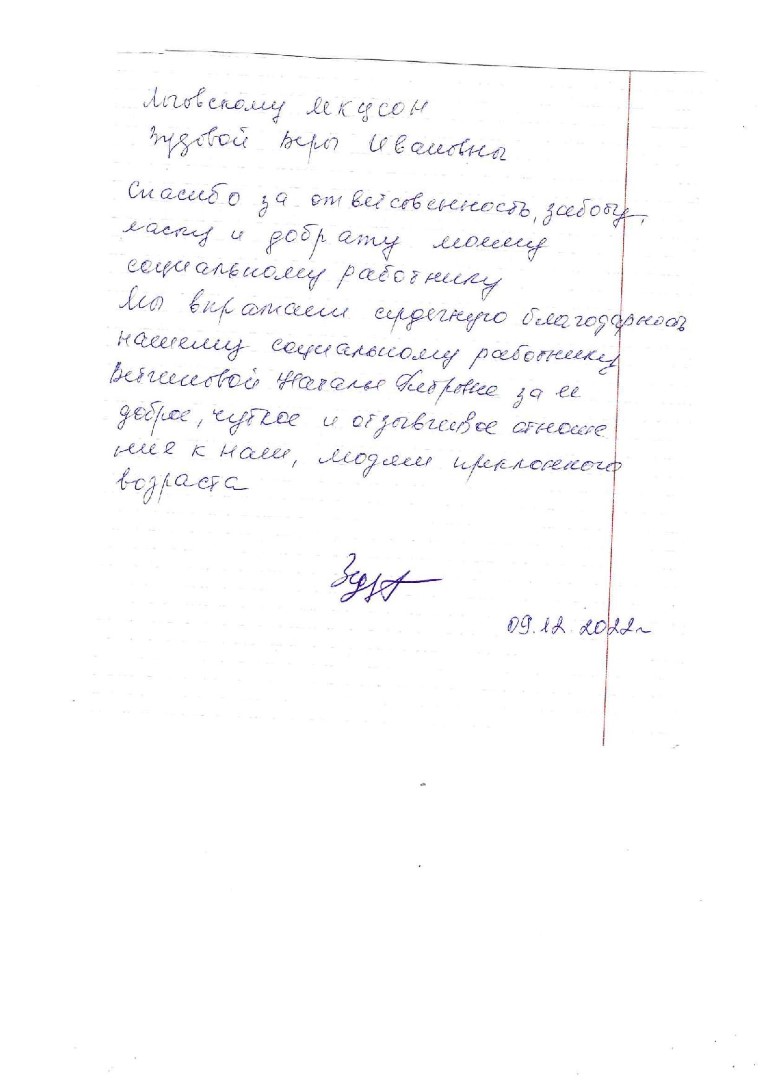 Лысковскому МКЦСОН
Зудовой Веры Ивановны
Спасибо за ответсовенность, заботу,
ласку и доброту моему
социальному работнику
Мы выражаем сердечную благодарность
нашему социальному работнику
Наталье Петровне за ее
доброе, чуткое и отзывчивое отноше
ние к нам, людям преклонного
возраста
09.12.2022г